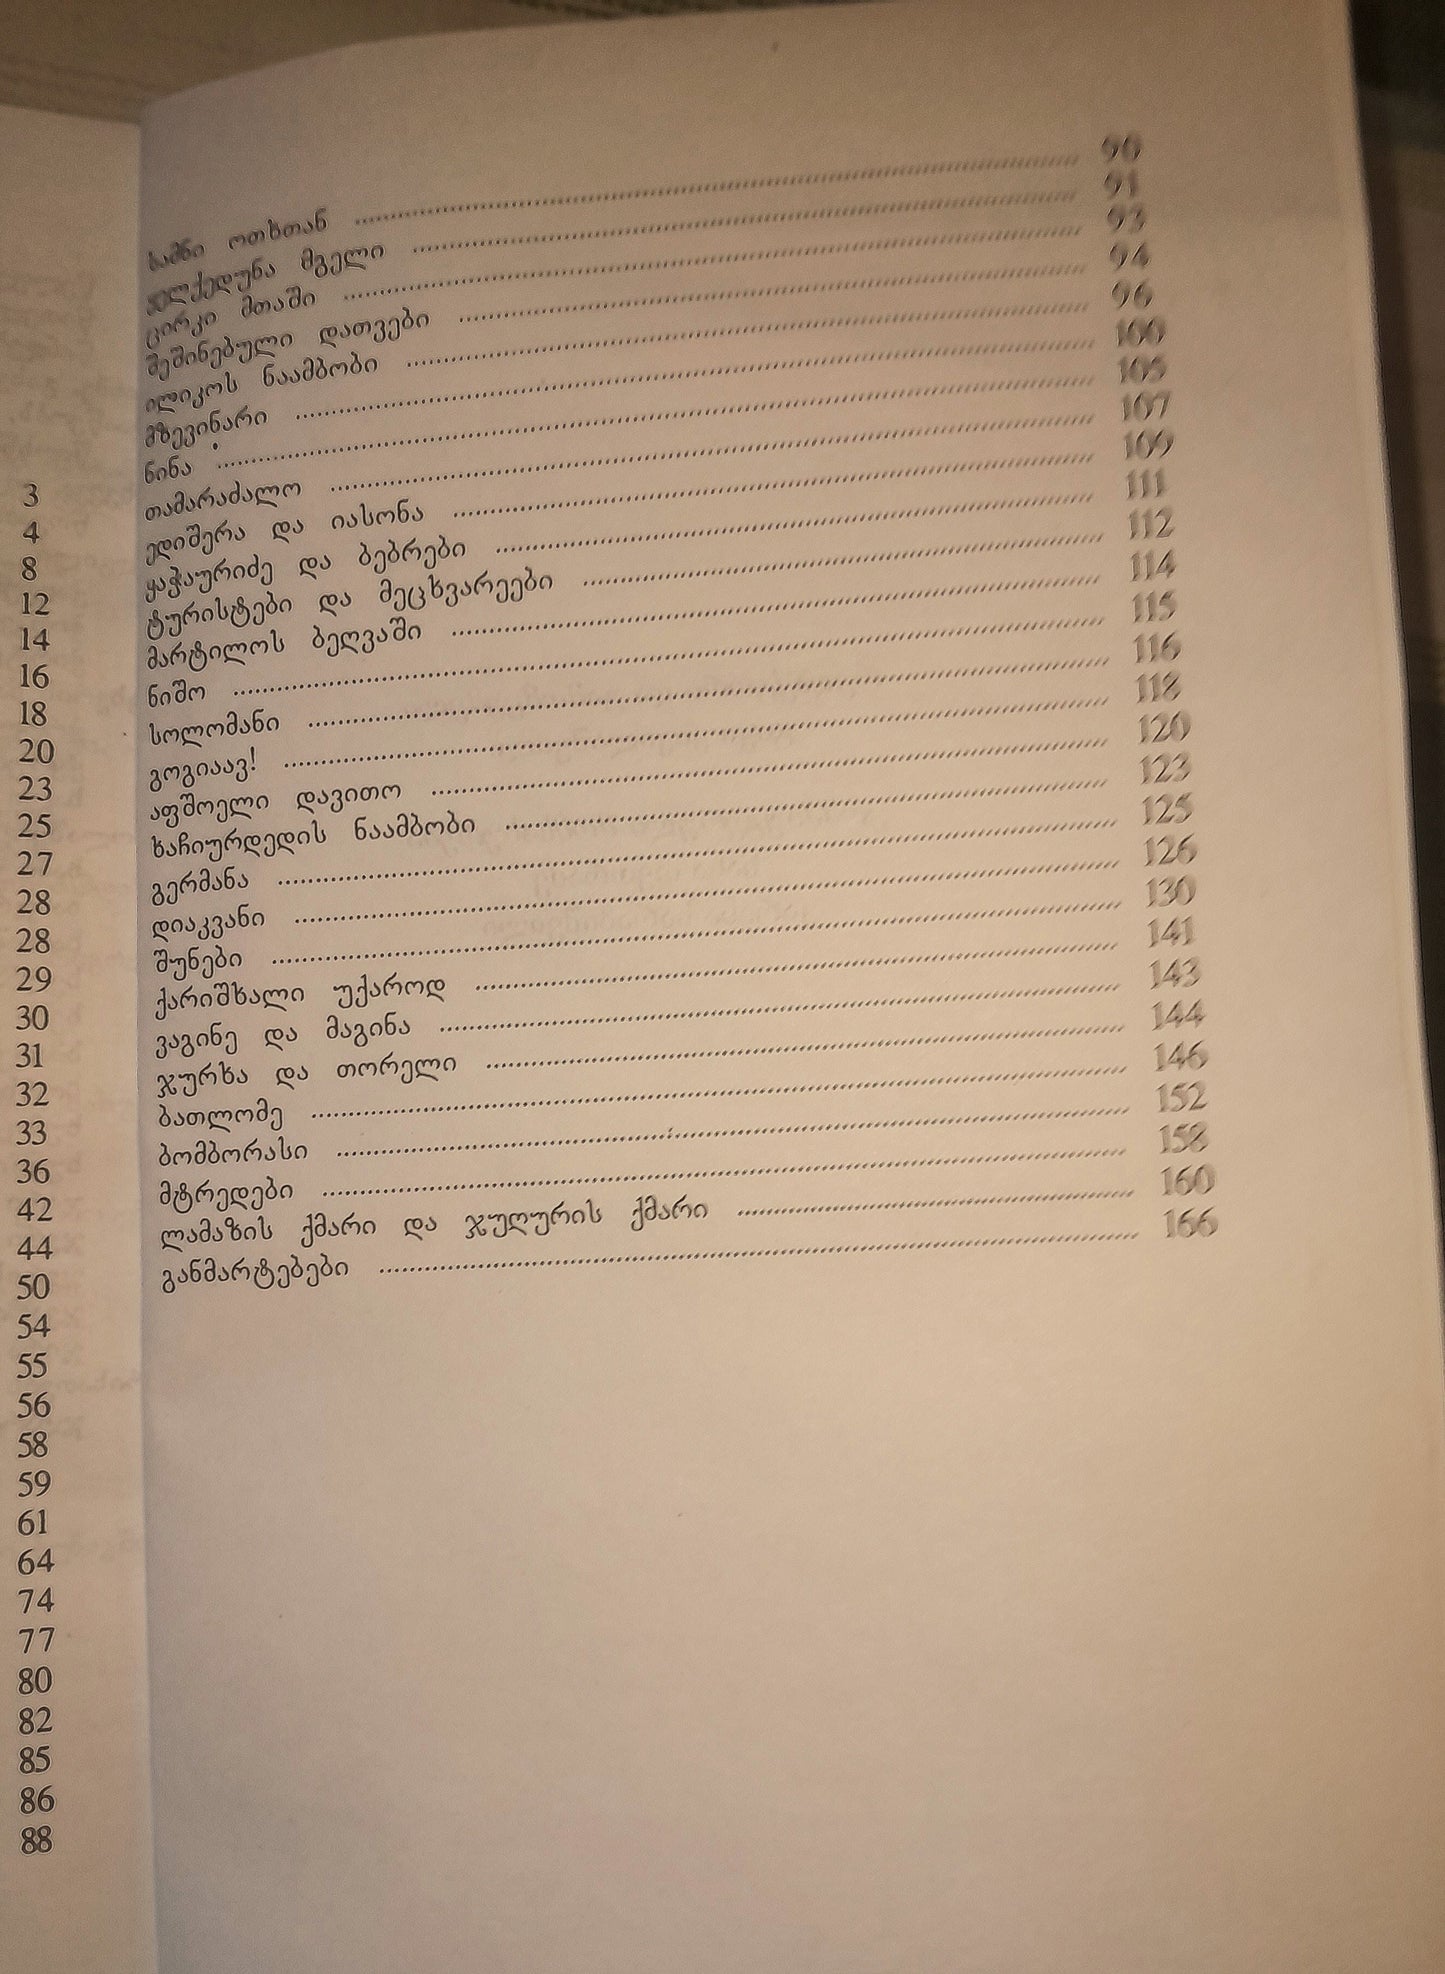 3
4
8
12
14
16
18
20
23
25
27
28
28
29
30
31
32
33
36
42
44
50
54
55
56
58
59
61
64
74
77
80
82
85
86
88
სამნი ოთხთან ........ 90
ყელქედუნა მგელი ........ 91
ცირკი მთაში ........ 93
შეშინებული დათვები ........ 94
ილიკოს ნაამბობი ........ 96
მზევინარი ........ 100
ნინა ........ 105
თამარაძალო ........ 107
ედიშერა და იასონა ........ 109
ყაჭაურიძე და ბებრები ........ 111
ტურისტები და მეცხვარეები ........ 112
მარტილოს ბეღვაში ........ 114
ნიშო ........ 115
სოლომანი ........ 116
გოგიაავ! ........ 118
აფშოელი დავითო ........ 120
ხაჩიურდედის ნაამბობი ........ 123
გერმანა ........ 125
დიაკვანი ........ 126
შუნები ........ 130
ქარიშხალი უქაროდ ........ 141
ვაგინე და მაგინა ........ 143
ჯურხა და თორელი ........ 144
ბათლომე ........ 146
ბომბორასი ........ 152
მტრედები ........ 158
ლამაზის ქმარი და ჯუღურის ქმარი ........ 160
განმარტებები ........ 166